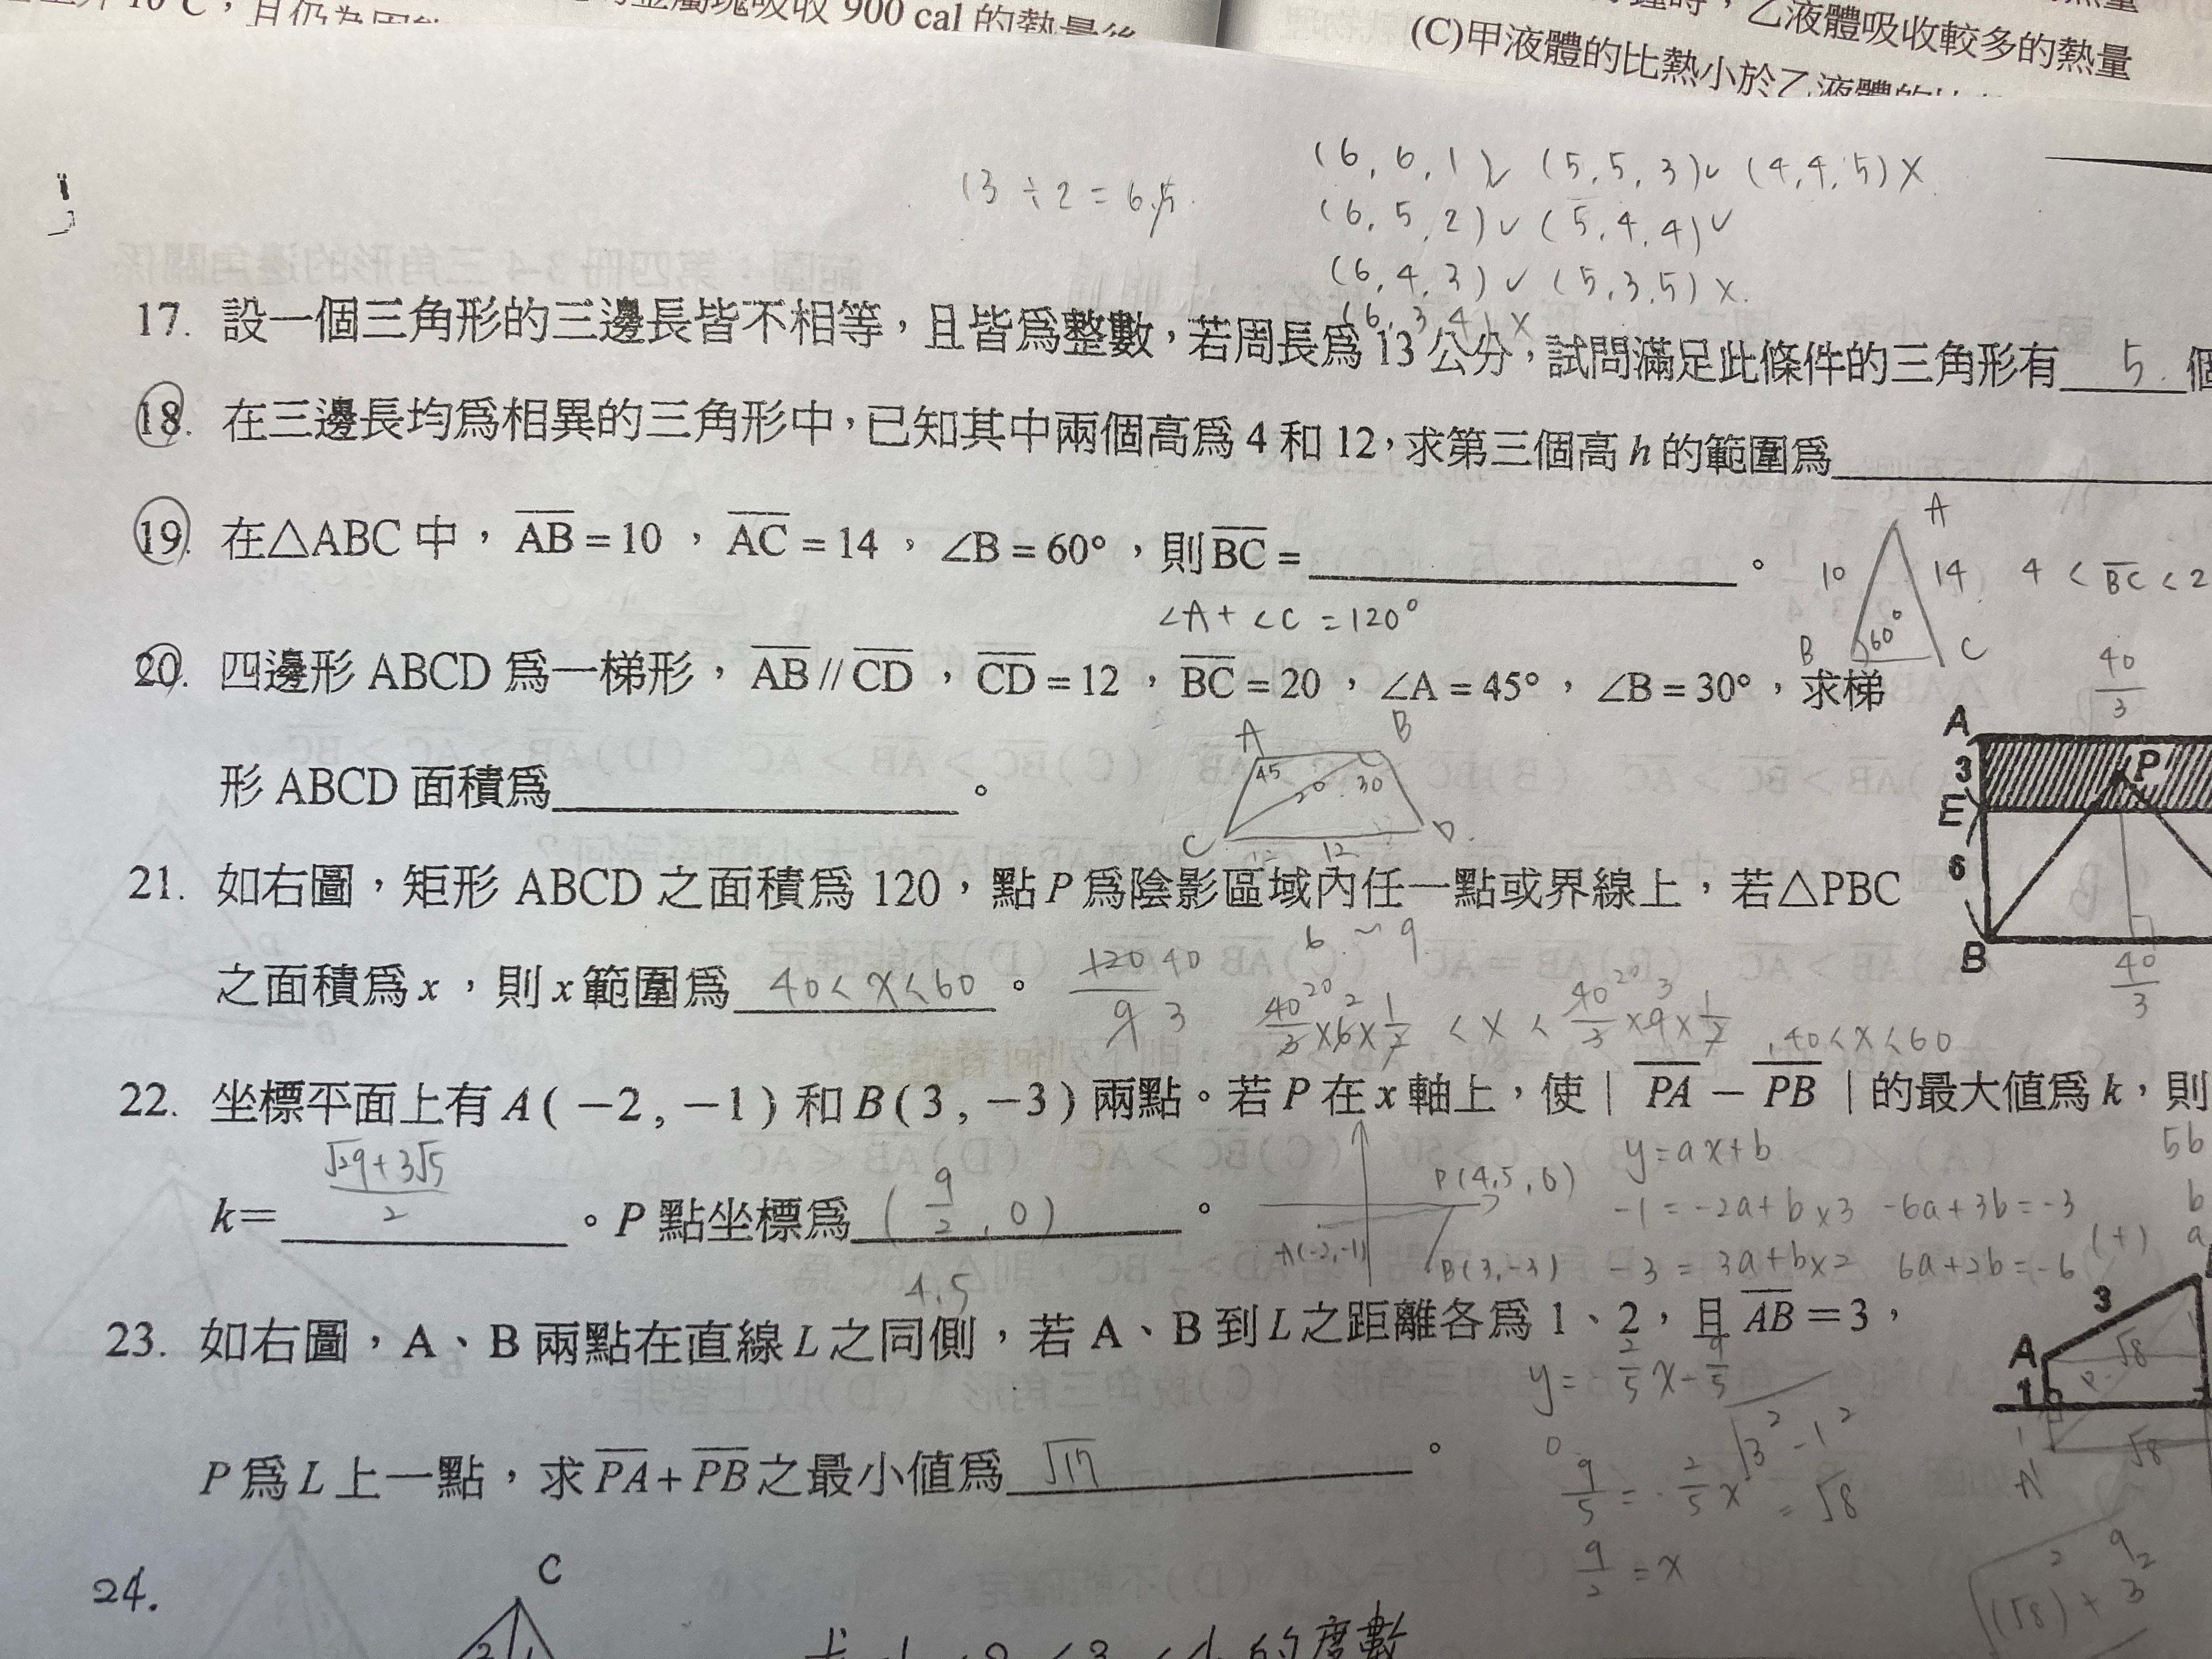 900 cal 的熱量後
乙液體吸收較多的熱量
(C)甲液體的比熱小於乙液體的比
13 ÷ 2 = 6.5
(6, 6, 1) ✓ (5, 5, 3) ✓ (4, 4, 5) ×
(6, 5, 2) ✓ (5, 4, 4) ✓
(6, 4, 3) ✓ (5, 3, 5) ×
(6, 3, 4) ×
17. 設一個三角形的三邊長皆不相等，且皆爲整數，若周長爲 13 公分，試問滿足此條件的三角形有 5 個
18. 在三邊長均爲相異的三角形中，已知其中兩個高爲 4 和 12，求第三個高 h 的範圍爲
19. 在△ABC 中，AB = 10 ，AC = 14 ，∠B = 60° ，則 BC = 。
A 10 14 B 60° C
4 < BC < 2
∠A + ∠C = 120°
20. 四邊形 ABCD 爲一梯形，AB // CD ，CD = 12 ，BC = 20 ，∠A = 45° ，∠B = 30° ，求梯
形 ABCD 面積爲 。
A B 45 20 30 C 12 12 D
40/3
A 3 E 6 B P
40/3
21. 如右圖，矩形 ABCD 之面積爲 120，點 P 爲陰影區域內任一點或界線上，若△PBC
6 ~ 9
之面積爲 x ，則 x 範圍爲 40 < x < 60 。
120/9 40 3
40/3 × 6 × 1/2 < x < 40/3 × 9 × 1/2
40 < x < 60
22. 坐標平面上有 A ( −2 , −1 ) 和 B ( 3 , −3 ) 兩點。若 P 在 x 軸上，使 | PA − PB | 的最大值爲 k，則
k= (√29+3√5)/2 。P 點坐標爲 ( 9/2 , 0 ) 。
4.5
P(4,5,0)
A(-2,-1)
B(3,-3)
y = ax + b
5b
-1 = -2a + b ×3 -6a + 3b = -3
(+)
-3 = 3a + b ×2 6a + 2b = -6
23. 如右圖，A、B 兩點在直線 L 之同側，若 A、B 到 L 之距離各爲 1、2，且 AB = 3，
3 A 1 √8 P √8 A'
y = -2/5 x - 9/5
√3² - 1²
= √8
P 爲 L 上一點，求 PA + PB 之最小值爲 √17 。
9/5 = -2/5 x
9/2 = x
24.
C